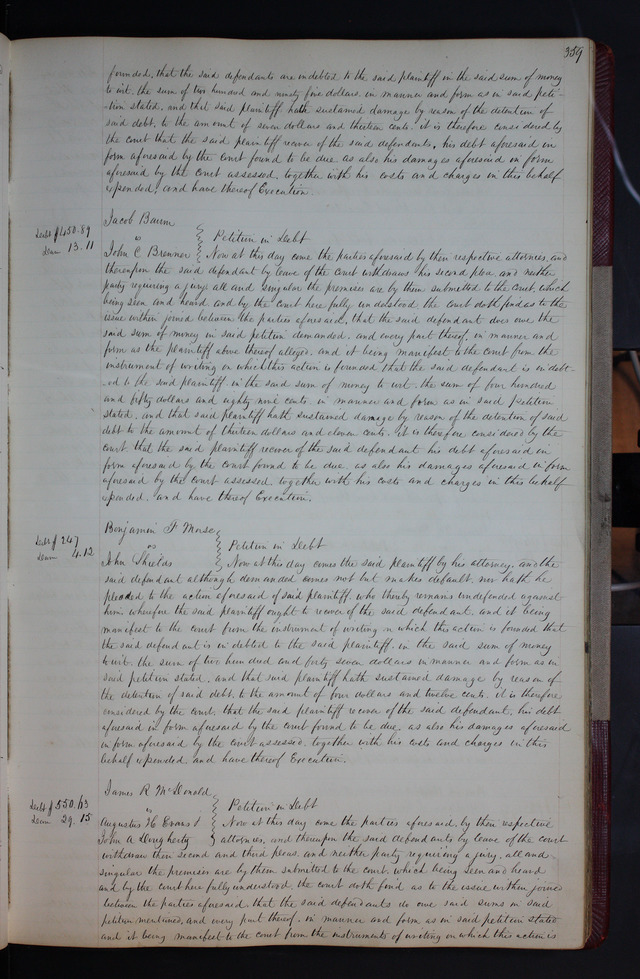 359
founded, that the said defendants are indebted to the said plaintiff in the said sum of money
to wit, the sum of two hundred and ninety five dollars in manner and form as in said peti-
-tion stated, and that said plaintiff hath sustained damage by reason of the detention of
said debt, to the amount of seven dollars and thirteen cents. it is therefore considered by
the court that the said plaintiff recover of the said defendants, his debt aforesaid in
form aforesaid by the court found to be due, as also his damages aforesaid in form
aforesaid by the court assessed, together with his costs and charges in this behalf
expended, and have thereof Execution.
Jacob Baum
Debt $450.89
Dam 13.11
vs
Petition in Debt
John C Brenner
Now at this day come the parties aforesaid by their respective attornies, and
thereupon the said defendant by leave of the Court withdraws his second plea, and neither
party requiring a jury all and singular the premises are by them submitted to the Court, which
being seen and heard and by the Court here fully understood the court doth find as to the
issue within joined between the parties aforesaid, that the said defendant does owe the
said sum of money in said petition demanded, and every part thereof, in manner and
form as the plaintiff above thereof alleges, and it being manifest to the court from the
instrument of writing on which this action is founded that the said defendant is indebt-
-ed to the said plaintiff in the said sum of money to wit. the sum of four hundred
and fifty dollars and eighty nine cents, in manner and form as in said petition
stated, and that said plaintiff hath sustained damage by reason of the detention of said
debt to the amount of thirteen dollars and eleven cents. it is therefore considered by the
court that the said plaintiff recover of the said defendant his debt aforesaid in
form aforesaid by the Court found to be due, as also his damages aforesaid in form
aforesaid by the Court assessed, together with his costs and charges in this behalf
expended, and have thereof Execution.
Benjamin F Morse
Debt $247
Dam 4.12
vs
Petition in Debt
John Shields
Now at this day comes the said plaintiff by his attorney, and the
said defendant although demanded comes not but makes default, nor hath he
pleaded to the action aforesaid of said plaintiff, who thereby remains undefended against
him wherefore the said plaintiff ought to recover of the said defendant, and it being
manifest to the court from the instrument of writing on which this action is founded that
the said defendant is in debted to the said plaintiff, in the said sum of money
to wit. the sum of two hundred and forty seven dollars in manner and form as in
said petition stated, and that said plaintiff hath sustained damage by reason of
the detention of said debt, to the amount of four dollars and twelve cents. it is therefore
considered by the court, that the said plaintiff recover of the said defendant, his debt
aforesaid in form aforesaid by the court found to be due, as also his damages aforesaid
in form aforesaid by the court assessed, together with his costs and charges in this
behalf expended, and have thereof Execution.
James R McDonald
Dam 29.15
vs
Petition in Debt
Augustus H Evans &
Now at this day come the parties aforesaid, by their respective
John A Dougherty
attornies, and thereupon the said defendants by leave of the court
withdraw their second and third pleas, and neither party requiring a jury, all and
singular the premises are by them submitted to the court, which being seen and heard
and by the court here fully understood, the court doth find as to the issue within joined
between the parties aforesaid, that the said defendants do owe said sums in said
petition mentioned, and every part thereof, in manner and form as in said petition stated
and it being manifest to the court from the instruments of writing on which this action is